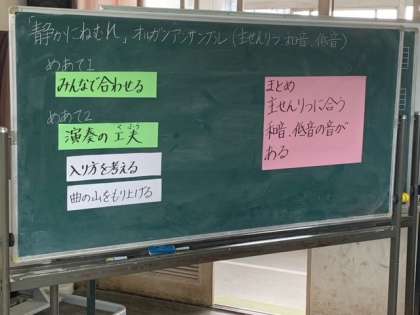 「静かにねむれ」オルガンアンサンブル(主せんりつ、和音、低音)
めあて1
みんなで合わせる
めあて2
演奏の工夫
くふう
入り方を考える
曲の山をもり上げる
まとめ
主せんりつに合う
和音、低音の音が
ある